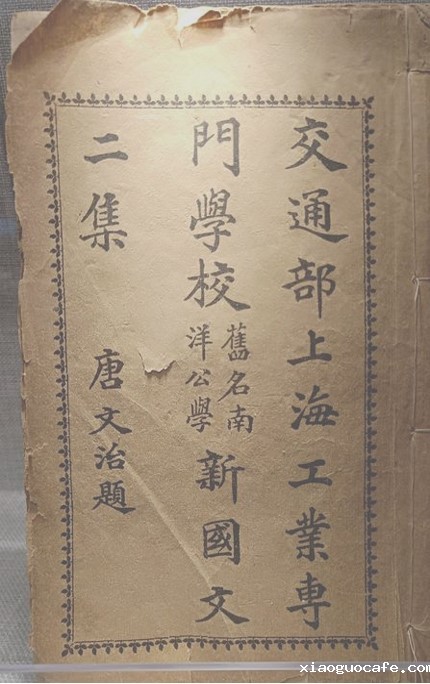 交通部上海工業專
門學校舊名南洋公學新國文
二集
唐文治題
xiaoguocafe.com